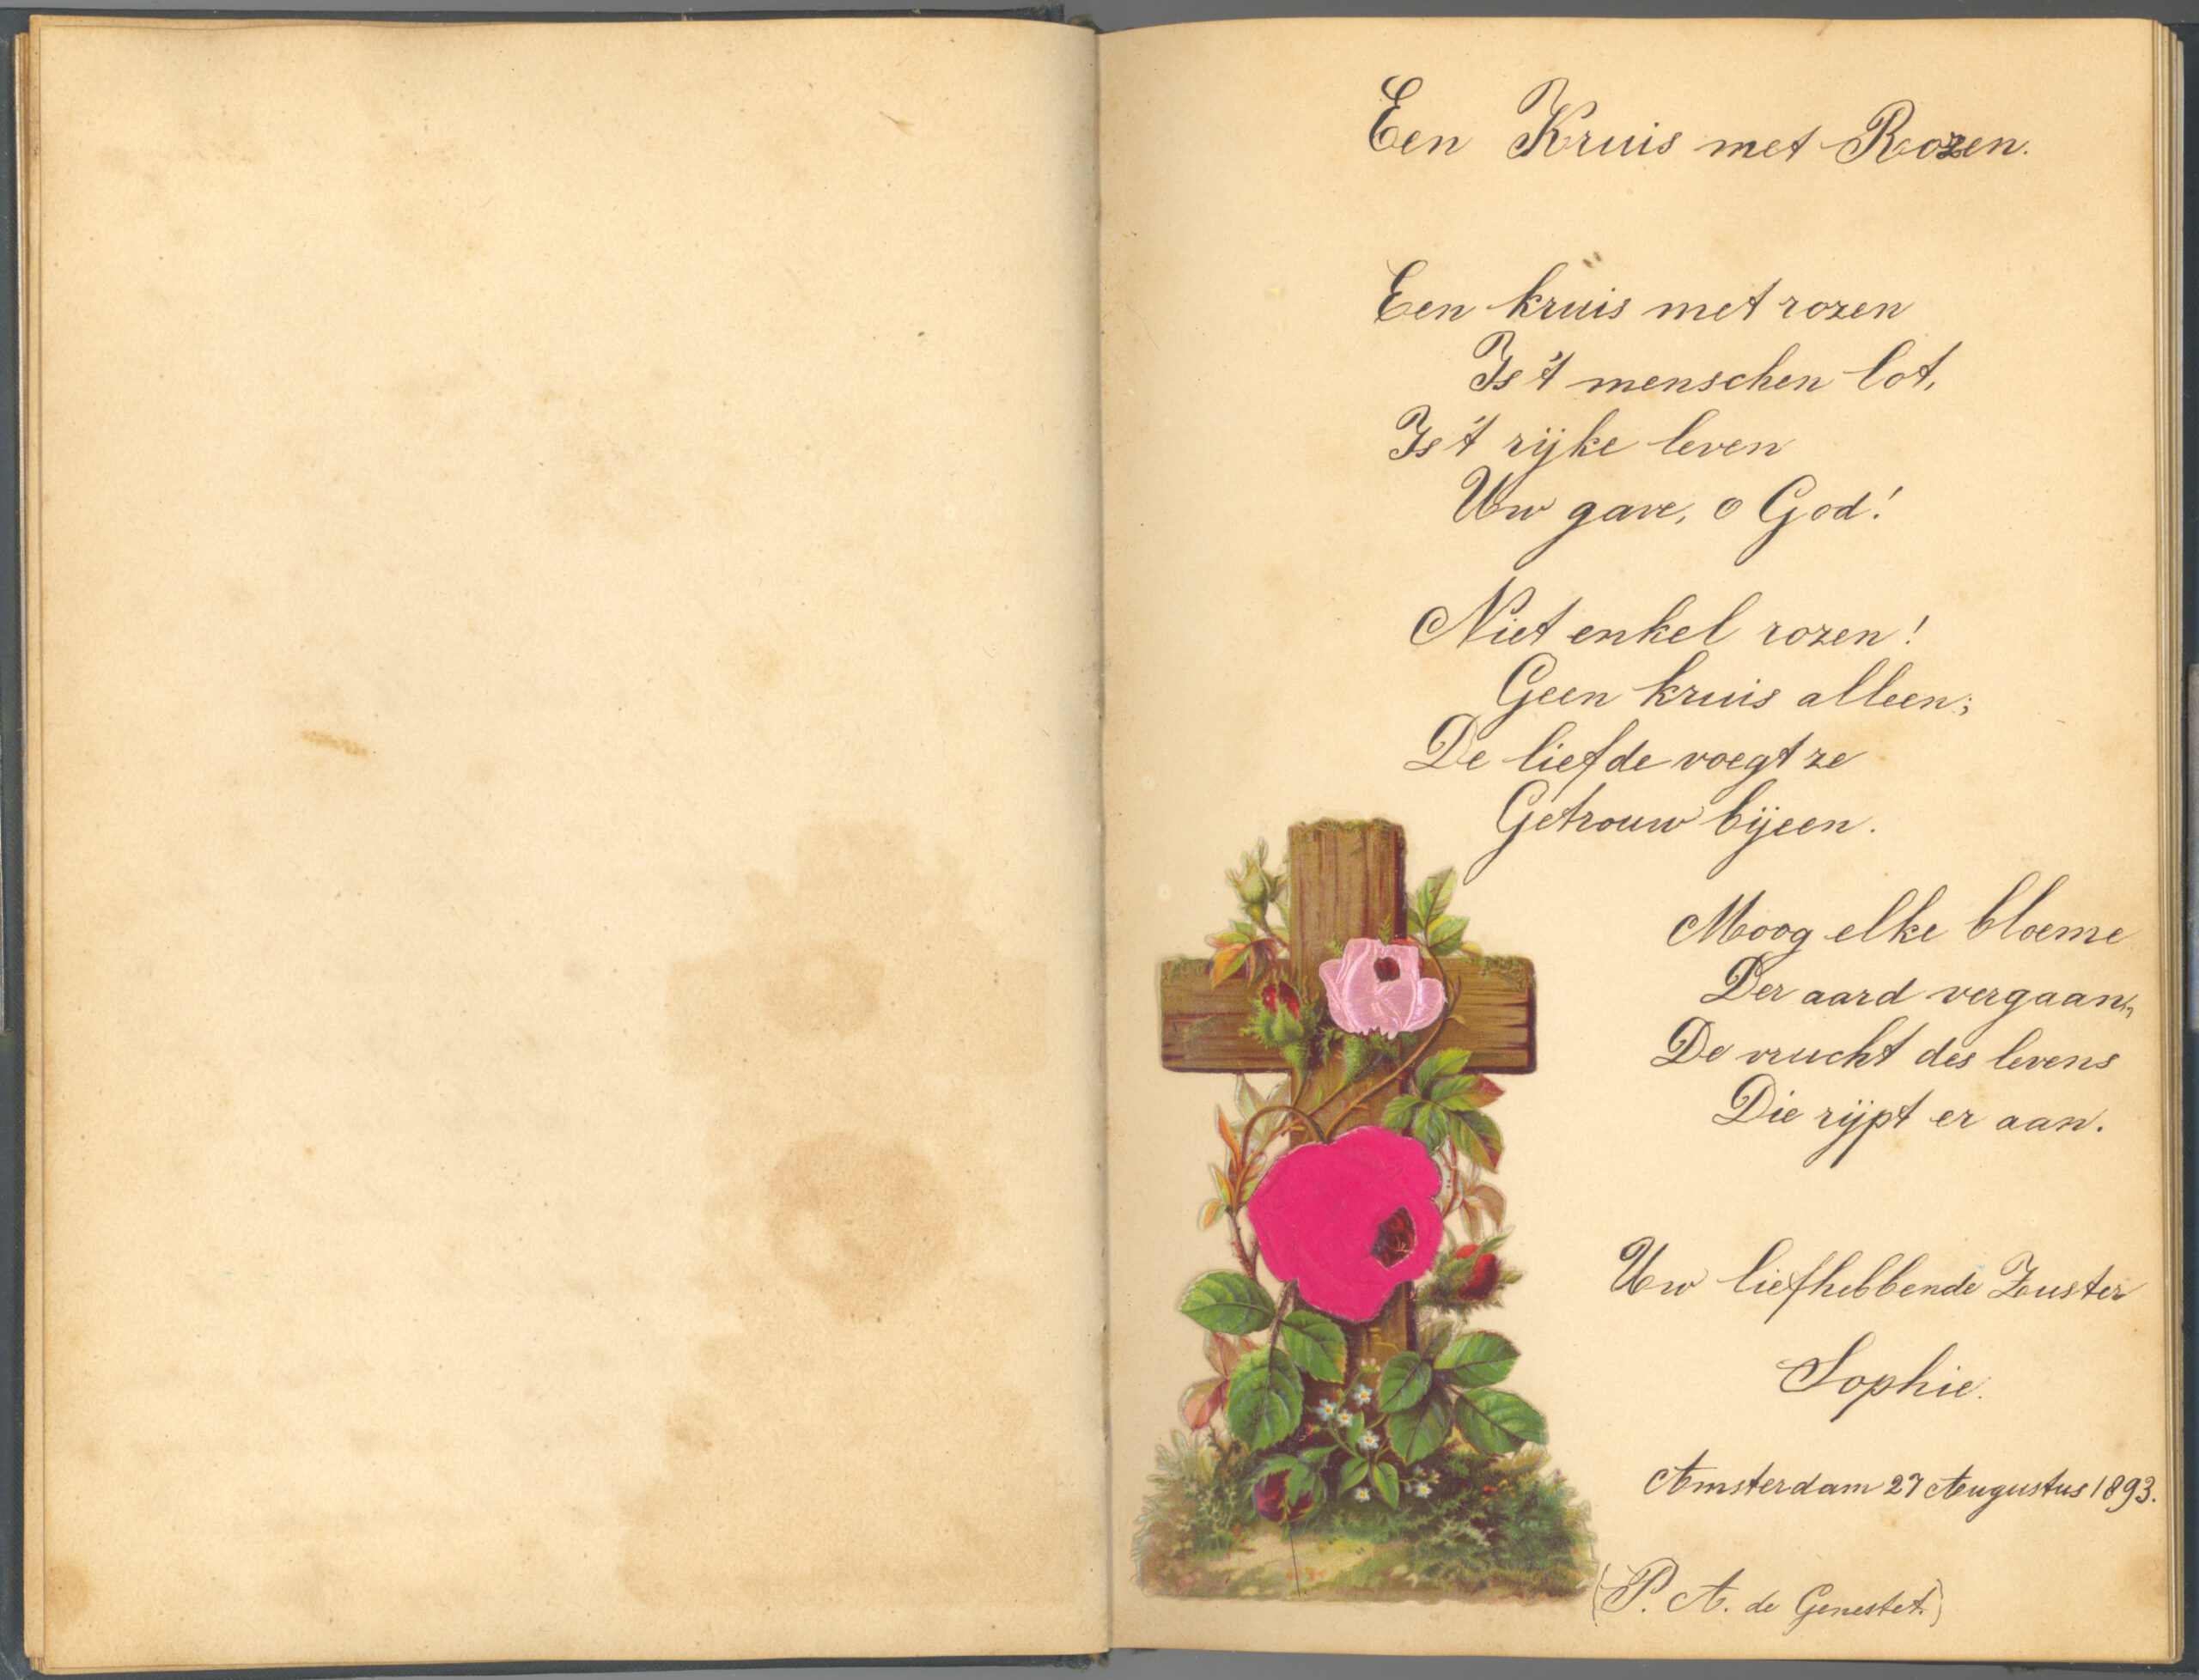 Een Kruis met Rozen.
Een kruis met rozen
Is 't menschen lot,
Is 't rijke leven
Uw gave, o God!
Niet enkel rozen!
Geen kruis alleen;
De liefde voegt ze
Getrouw bijeen.
Moog elke bloeme
Der aard vergaan,
De vrucht des levens
Die rijpt er aan.
Uw liefhebbende Zuster
Sophie.
Amsterdam 27 Augustus 1893.
(P. A. de Genestet)